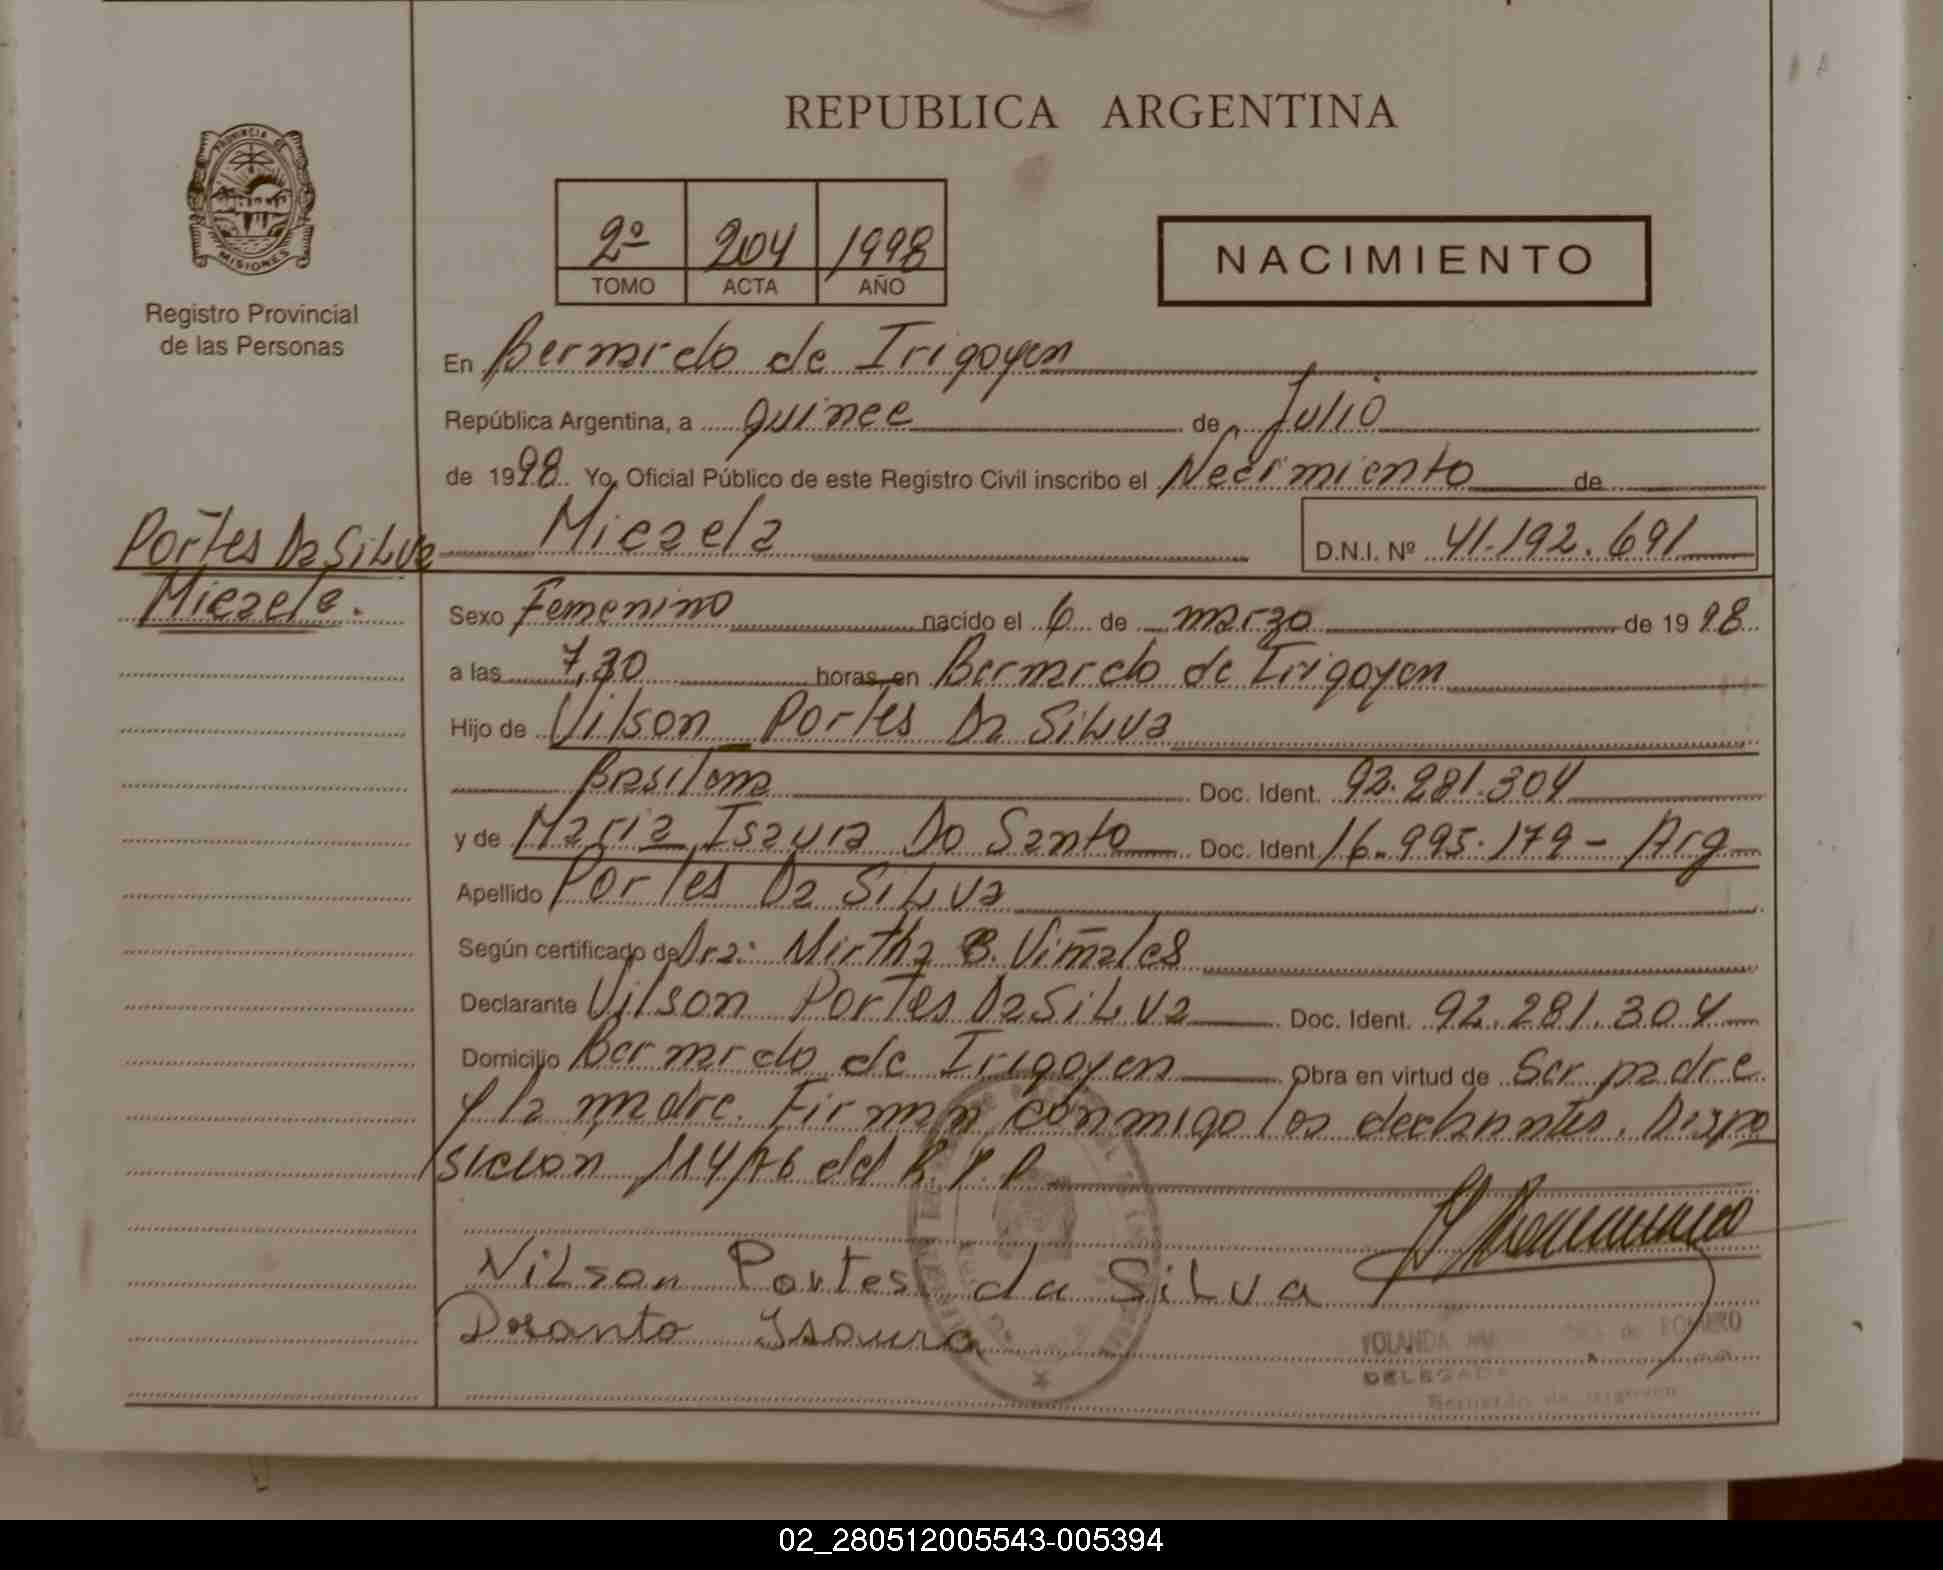 REPUBLICA ARGENTINA
PROVINCIA DE
MISIONES
Registro Provincial
de las Personas
2º 204 1998
TOMO ACTA AÑO
NACIMIENTO
En Bernardo de Irigoyen
República Argentina, a quince de Julio
de 1998 Yo, Oficial Público de este Registro Civil inscribo el Nacimiento de
Micaela D.N.I. Nº 41.192.691
Portes Da Silva
Micaela.
Sexo Femenino nacido el 6 de marzo de 1998
a las 7,30 horas, en Bernardo de Irigoyen
Hijo de Vilson Portes Da Silva
Brasilera Doc. Ident. 92.281.304
y de Maria Isaura Do Santo Doc. Ident. 16.995.179 - Arg
Apellido Portes Da Silva
Según certificado de Dra: Mirtha B. Viñales
Declarante Vilson Portes Da Silva Doc. Ident. 92.281.304
Domicilio Bernardo de Irigoyen Obra en virtud de Ser padre
y la madre. Firman conmigo los declarantes. Dispo
sición 114/76 del R.P.P.
Nilson Portes da Silva
Dosanto Isaura
YOLANDA de ROMERO
DELEGADA
Bernardo de Irigoyen
02_280512005543-005394